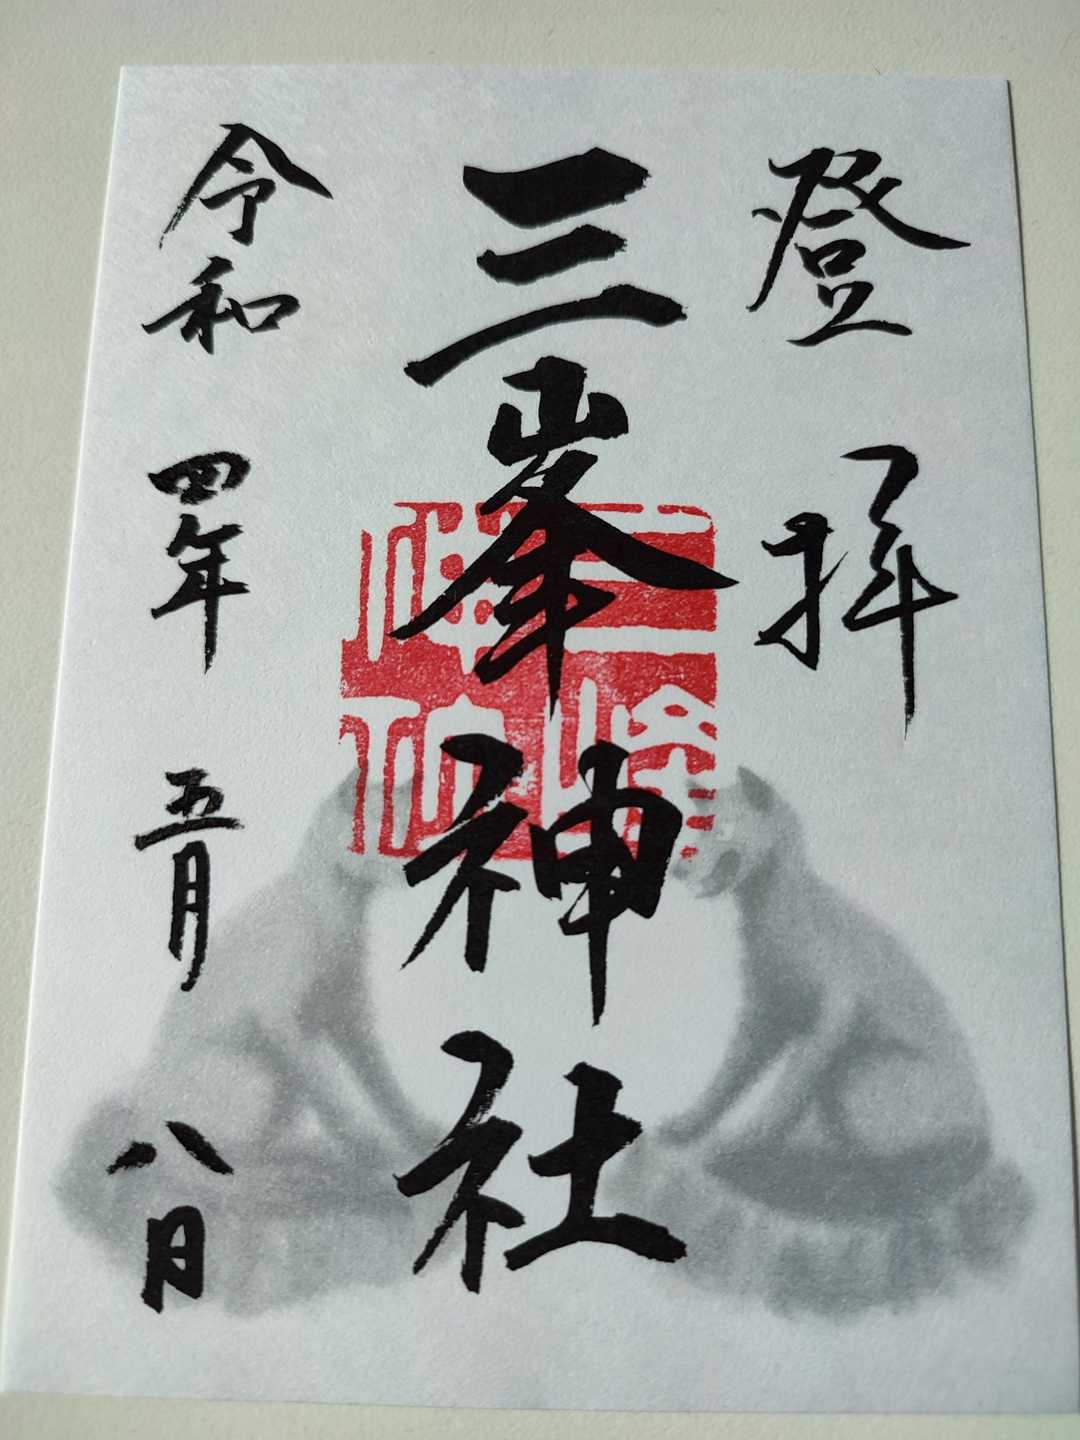 登拝
三峯神社
令和四年五月八日